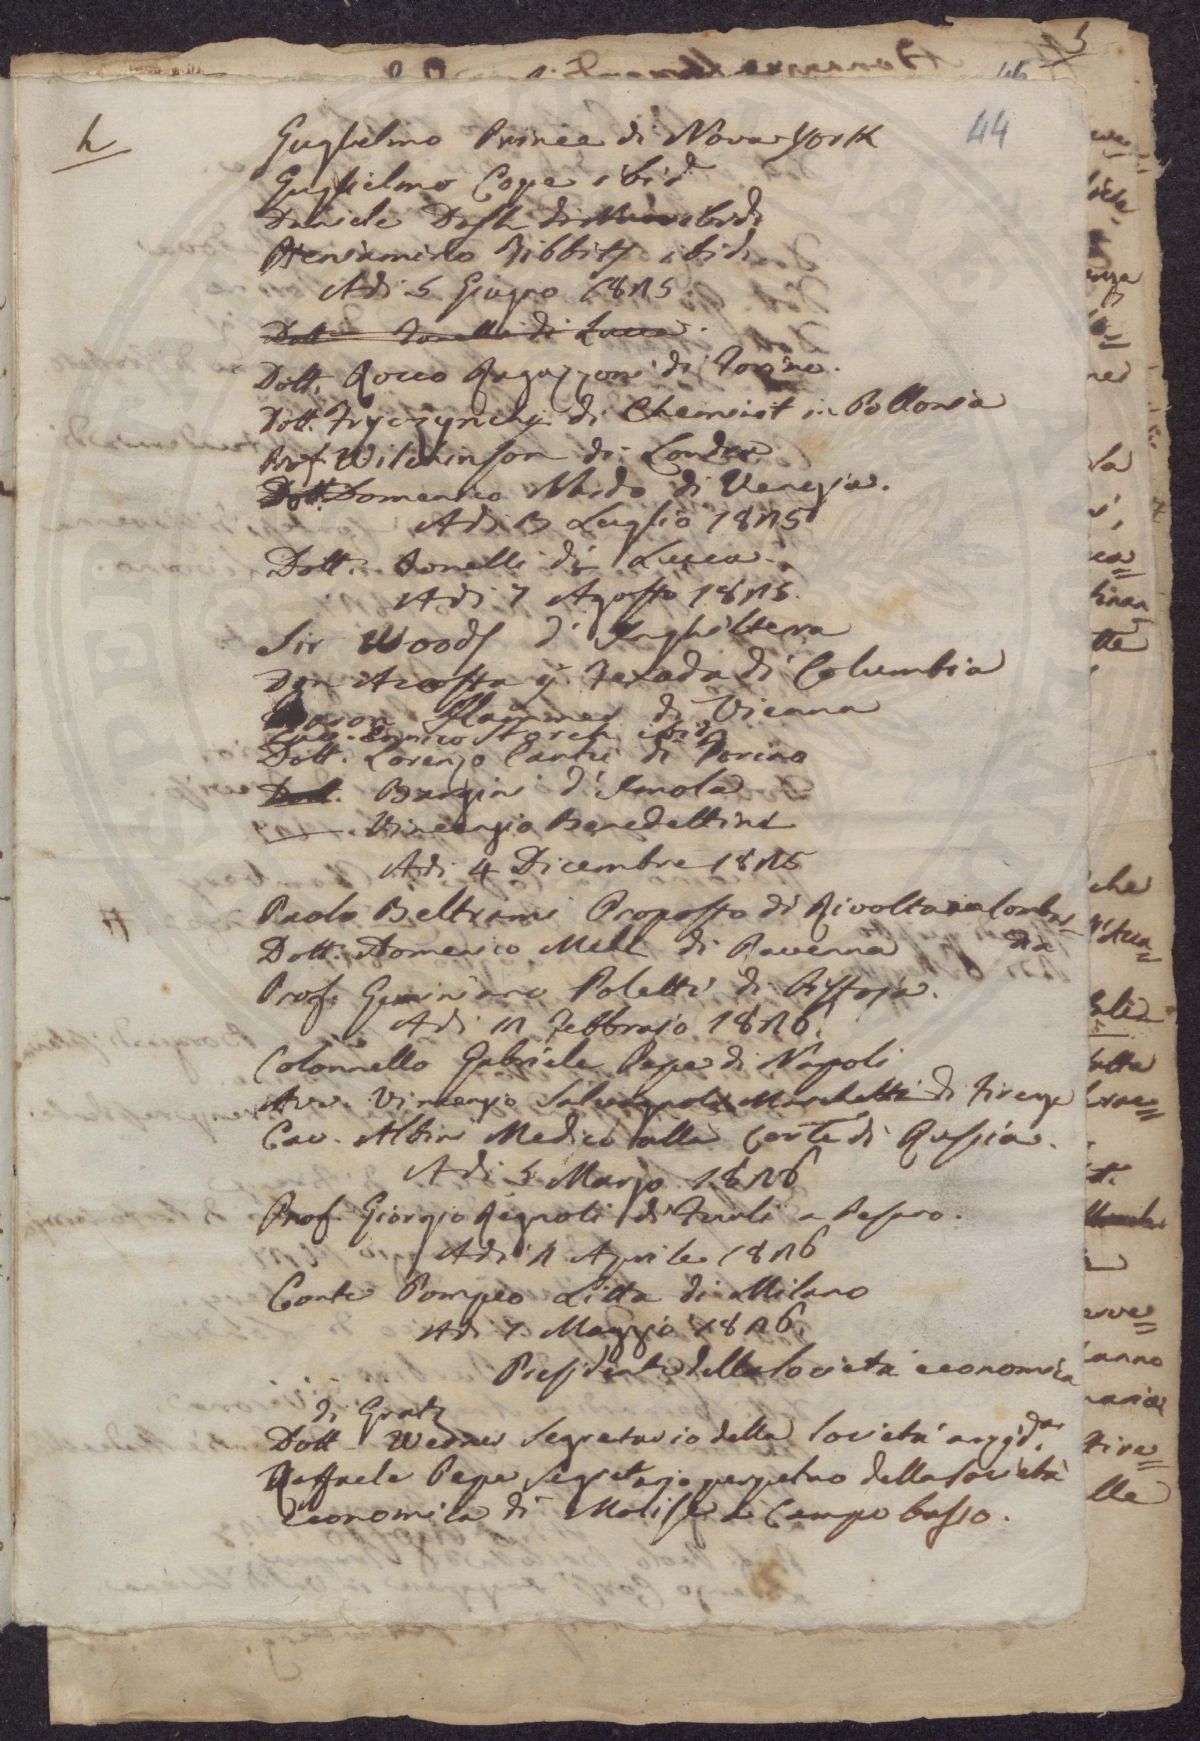 h
44
Guglielmo Prince di Nova-York
Guglielmo Cope ibid
Daniele Dash ibidi
Beniamino Tibbits ibidi
Adi 5 Giugno 1825
Dott. Tonelli di Lucca.
Dott. Rocco Ragazzoni di Torino.
Dott. di in Pollonia
Prof. Wilchinson di Londra
Dott. Domenico Nardo di Venezia.
Adi 3 Luglio 1825
Dott. Tonelli di Lucca.
Adi 7 Agosto 1825.
Sir Woods d'Inghilterra
Don Acosta y Texada di Columbia
Baron di Vienna
Cav. Enrico Storch ibid
Dott. Lorenzo Cantù di Torino
Dott. d'Imola
Vincenzio Benedettini
Adi 4 Dicembre 1825
Paolo Beltrami Proposto di Rivolta in Lombar
dia
Dott. Domenico Meli di Ravenna
Prof. Geminiano Poletti di Pistoja.
Adi 12 Febbrajo 1826.
Colonnello Gabriele Pepe di Napoli
Avv. Vincenzo Salvagnoli Marchetti di Firenze
Cav. Albini Medico alla Corte di Russia.
Adi 5 Marzo 1826
Prof. Giorgio Regnoli di Forlì a Pesaro.
Adi 2 Aprile 1826
Conte Pompeo Litta di Milano
Adi 7. Maggio 1826.
Presidente della Società economica
di Gratz
Dott Werner Segretario della Società
Raffaele Pepe Segretario perpetuo della Società
Economica di Molise a Campobasso.